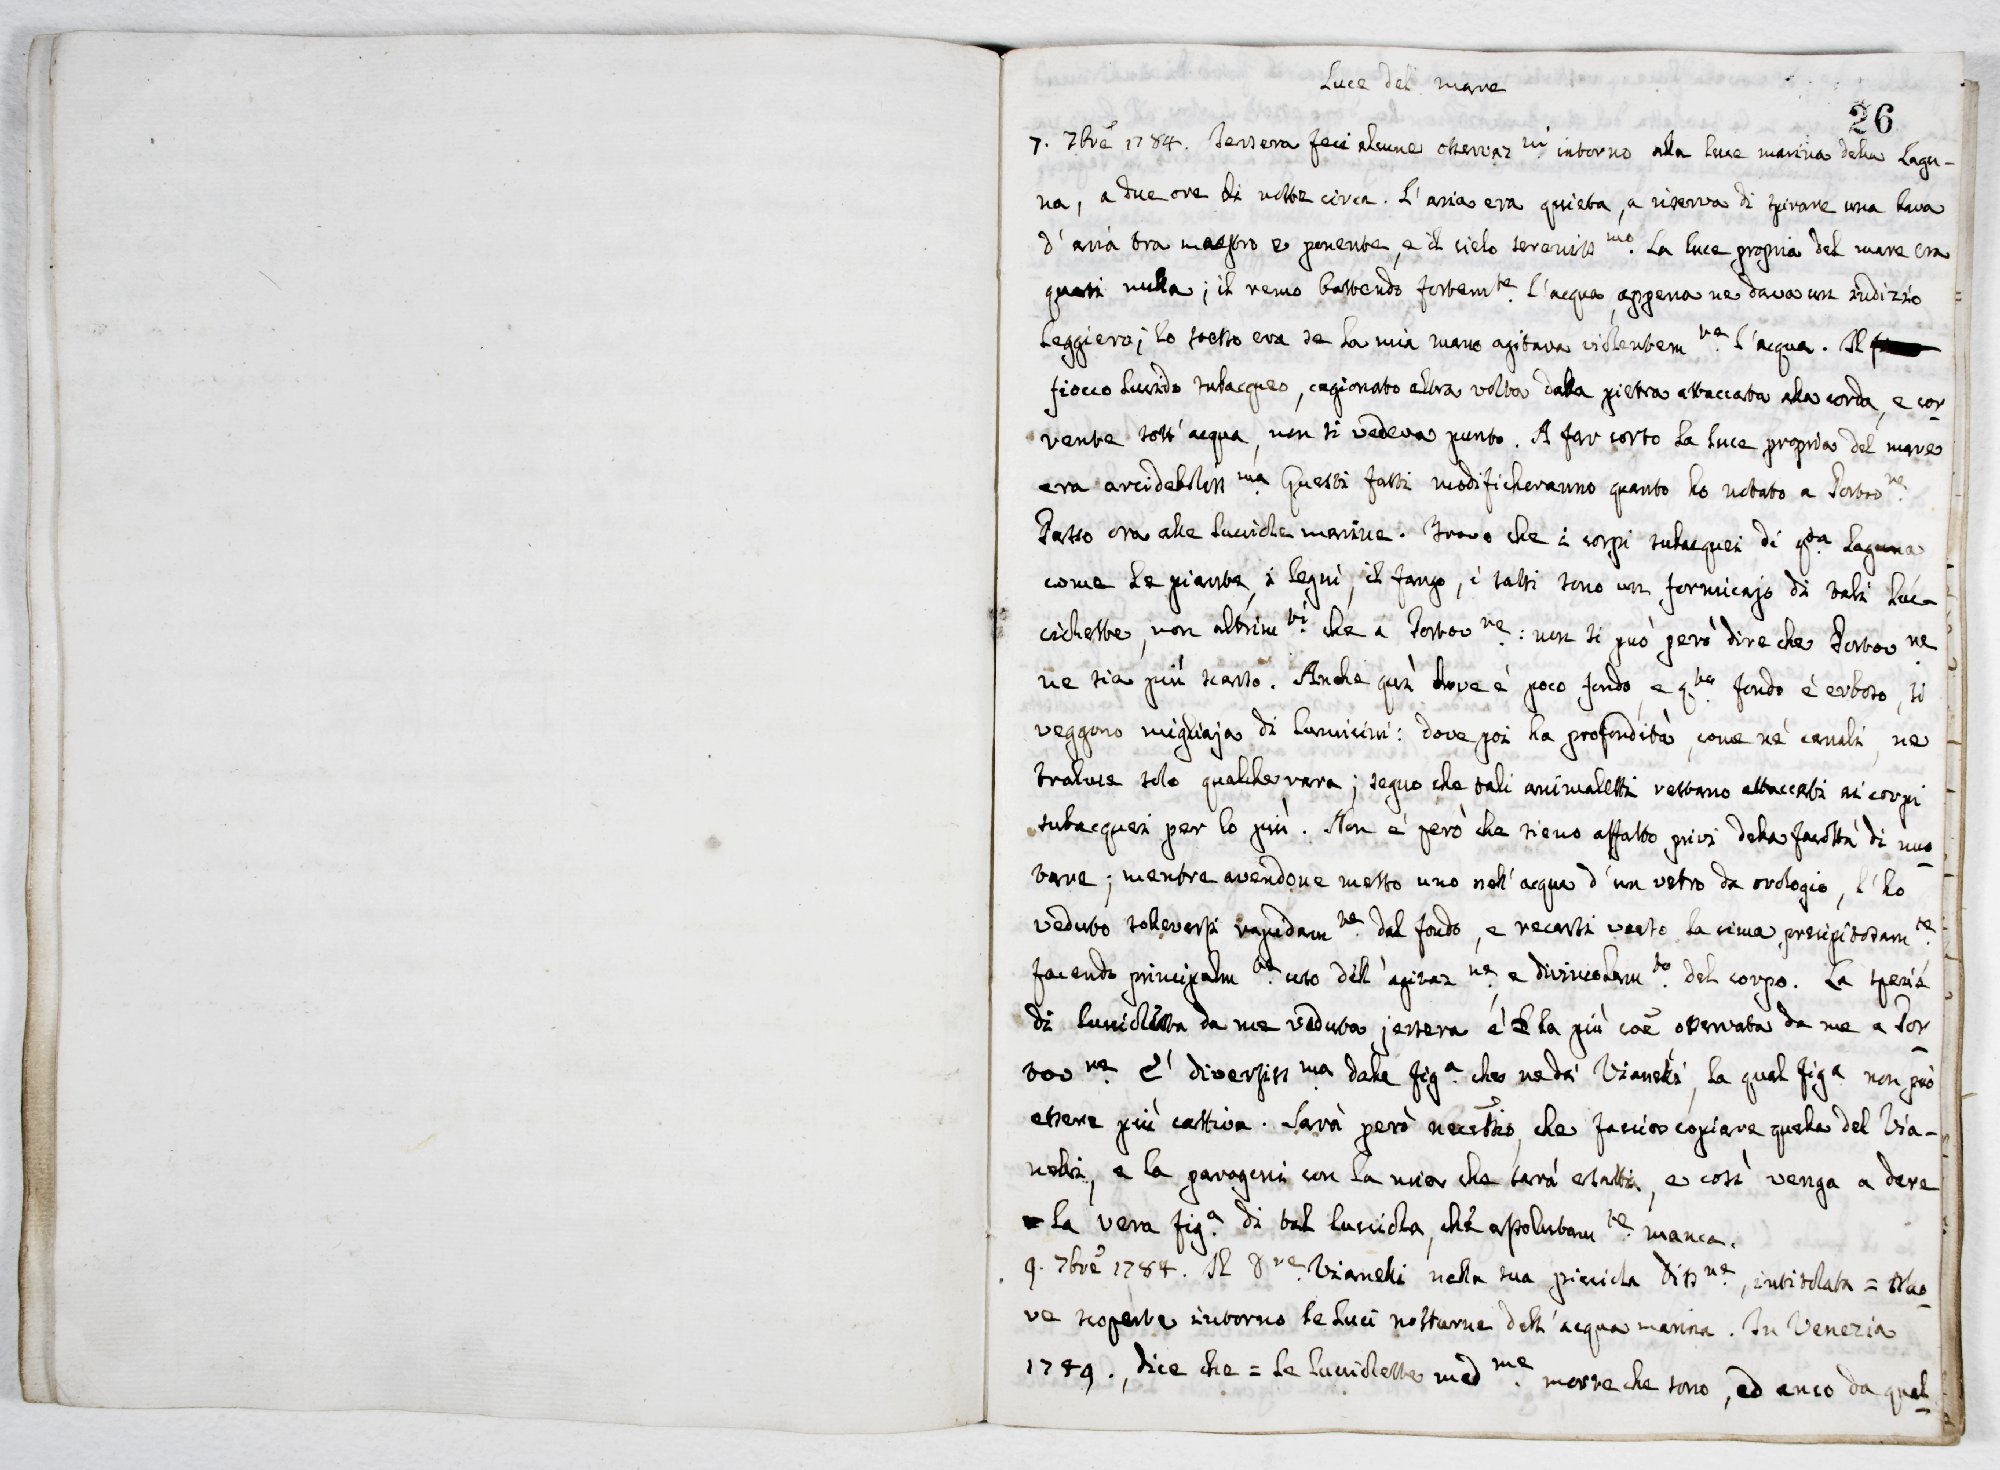 Luce del mare
26
7. 7bre 1784. Jersera feci alcune osservaz.ni intorno alla luce marina della Lagu-
na, a due ore di notte circa. L'aria era quieta, a riserva di spirare una bava
d'aria tra maestro e ponente, e il cielo sereniss.mo La luce propria del mare era
quasi nulla; il remo battendo fortem.te l'acqua, appena ne dava un indizio
leggiero; lo stesso era se la mia mano agitava violentem.te l'acqua. Il
fiocco lucido subacqueo, cagionato altra volta dalla pietra attaccata alla corda, e cor-
rente sott'acqua, non si vedeva punto. A far corto la luce propria del mare
era arcideboliss.ma Questi fatti modificheranno quanto ho notato a Portov.re
Passo ora alle lucciole marine. Trovo che i corpi subacquei di q.ta laguna
come le piante, i legni, il fango, i sassi sono un formicajo di tali luc-
ciolette, non altrim.ti che a Portov.re: non si può però dire che Portov.re
ne sia più scarso. Anche quì dove è poco fondo, e q.to fondo è erboso, si
veggono migliaja di lumicini: dove poi ha profondità, come ne' canali, ne
traluce solo qualche rara; segno che tali animaletti restano attaccati ai corpi
subacquei per lo più. Non è però che sieno affatto privi della facoltà di nuo-
tare; mentre avendone messo uno nell'acqua d'un vetro da orologio, l'ho
veduto sollevarsi rapidam.te dal fondo, e recarsi verso la cima precipitosam.te
facendo principalm.te uso dell'agitaz.ne, e divincolam.to del corpo. La spezie
di luccioletta da me veduta jersera è la più coe osservata da me a Por-
tov.re È diversiss.ma dalle fig.a che ne dà Vianelli, la qual fig.a non può
essere più cattiva. Sarà però necessio, che faccia copiare quella del Via-
nelli, e la paragoni con la mia che sarà esatta, e così venga a dare
la vera fig.a di tal lucciola, che assolutam.te manca.
9. 7bre 1784. Il D.re Vianelli nella sua piccola Diss.ne, intitolata = Nuo-
ve scoperte intorno le luci notturne dell'acqua marina. In Venezia
1749., dice che = le lucciolette med.me morte che sono, ed anco da qual-